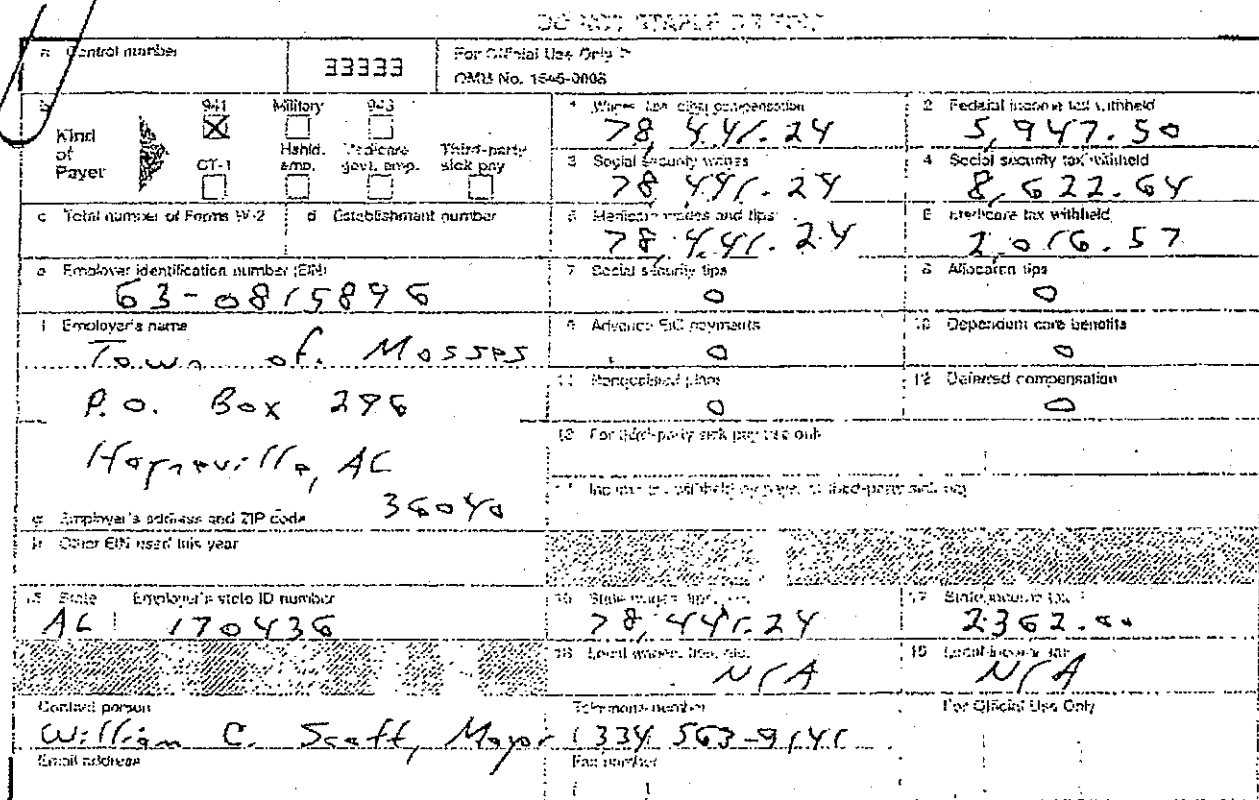 DO NOT STAPLE OR FOLD
a Control number
33333
For Official Use Only
OMB No. 1545-0008
b
Kind of Payer
941 Military 943
CT-1 Hshld. emp. Medicare govt. emp. Third-party sick pay
1 Wages, tips, other compensation
78,441.24
2 Federal income tax withheld
5,947.50
3 Social security wages
78,441.24
4 Social security tax withheld
8,622.64
c Total number of Forms W-2
d Establishment number
5 Medicare wages and tips
78,441.24
6 Medicare tax withheld
2,016.57
e Employer identification number (EIN)
63-0815896
7 Social security tips
0
8 Allocated tips
0
f Employer's name
Town of Mosses
9 Advance EIC payments
0
10 Dependent care benefits
0
P.O. Box 296
11 Nonqualified plans
0
12 Deferred compensation
0
Hayneville, AL
36040
13 For third-party sick pay use only
14 Income tax withheld by payer of third-party sick pay
g Employer's address and ZIP code
h Other EIN used this year
15 State Employer's state ID number
AL 170436
16 State wages, tips, etc.
78,441.24
17 State income tax
2362.00
18 Local wages, tips, etc.
N/A
19 Local income tax
N/A
Contact person
William C. Scott, Mayor
Telephone number
(334 563-9141
For Official Use Only
Email address
Fax number
( )